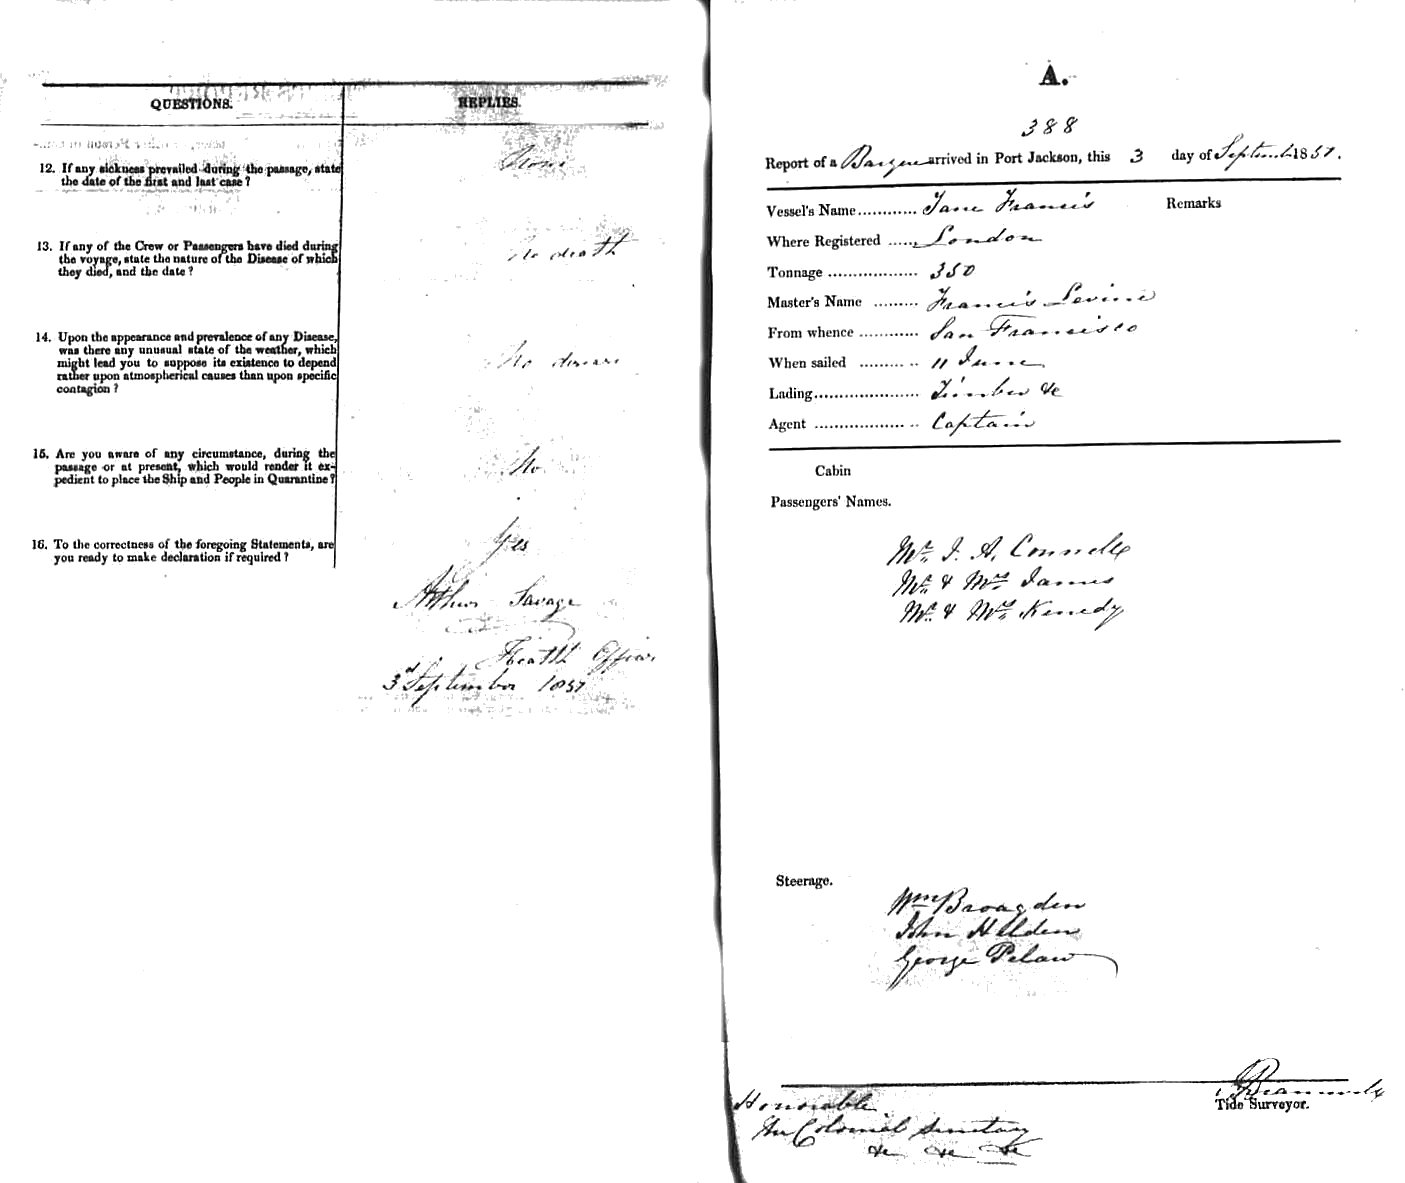 QUESTIONS.
REPLIES.
12. If any sickness prevailed during the passage, state
the date of the first and last case?
None
13. If any of the Crew or Passengers have died during
the voyage, state the nature of the Disease of which
they died, and the date?
No death
14. Upon the appearance and prevalence of any Disease,
was there any unusual state of the weather, which
might lead you to suppose its existence to depend
rather upon atmospherical causes than upon specific
contagion?
No disease
15. Are you aware of any circumstance, during the
passage or at present, which would render it ex-
pedient to place the Ship and People in Quarantine?
No
16. To the correctness of the foregoing Statements, are
you ready to make declaration if required?
Yes
Arthur Savage
Health Officer
3d September 1851
A.
388
Report of a Barque arrived in Port Jackson, this 3 day of September 1851.
Vessel's Name............ Jane Francis
Remarks
Where Registered ...... London
Tonnage .................. 350
Master's Name ......... Francis Levine
From whence ............ San Francisco
When sailed ......... .. 11 June
Lading..................... Timber &c
Agent .................. .. Captain
Cabin
Passengers' Names.
Mr. J. A. Connell
Mr. & Mrs. James
Mr. & Mrs. Kenedy
Steerage.
Wm Brogden
John Holden
George Pelaw
Tide Surveyor.
Honorable
The Colonial Secretary
&c &c &c